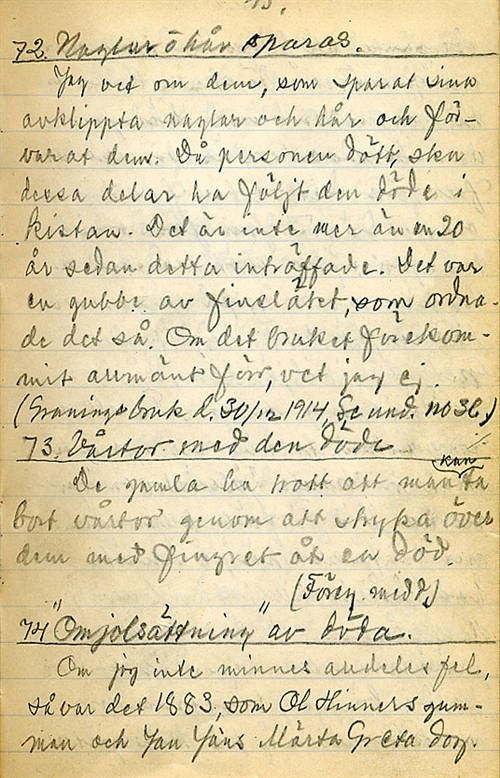 72. Naglar o hår sparas.
Jag vet om dem, som sparat sina
avklippta naglar och hår och för-
varat dem. Då personen dött, ska
dessa delar ha följt den döde i
kistan. Det är inte mer än en 20
år sedan detta inträffade. Det var
en gubbe av finsläktet, som ordna-
de det så. Om det bruket förekom-
mit allmänt förr, vet jag ej.
(Graninge bruk d. 30/12 1914, Se und. no 36.)
73. Vårtor med den döde
De gamla ha trott att man kan ta
bort vårtor genom att stryka över
dem med fingret åt en död.
(Föreg. medd.)
74 "Omjolsättning" av döda.
Om jag inte minnes alldeles fel,
så var det 1883, som Ol Hinners gum-
man och Jan Jans Märta Greta dog.